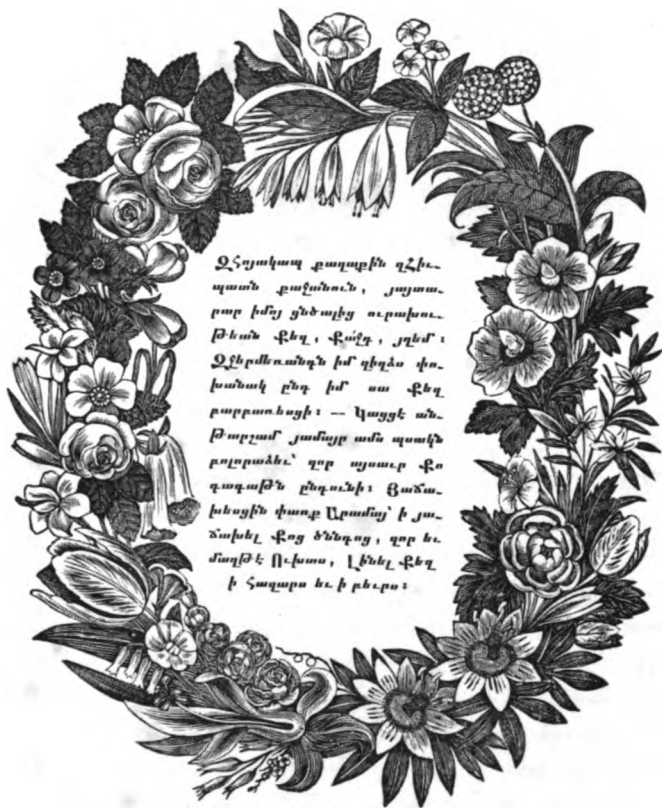 ԶՀոյակապ քաղաքին զՀիւ֊
պատն քաջանուն, յայտա֊
րար իմոյ ցնծալից ուրախու֊
Թեան Քեզ, Քա՛ջդ, յղեմ։
Զջերմեռանդն իմ զիղձս փո֊
խանակ ընդ իմ սա Քեզ
բարբառեսցի։ — Կացցէ ան֊
Թարշամ յամայր ամս պսակն
բոլորաձեւ՝ զոր այսաւր Քո
գագաԹն ընդունի։ Յաճա֊
խեսցին փառք Արամայ՝ ի յա֊
ճախել Քոց ծննդոց, զոր եւ
մաղԹէ Ուխտս, Լինել Քեզ
ի հազարս եւ ի բեւրս։